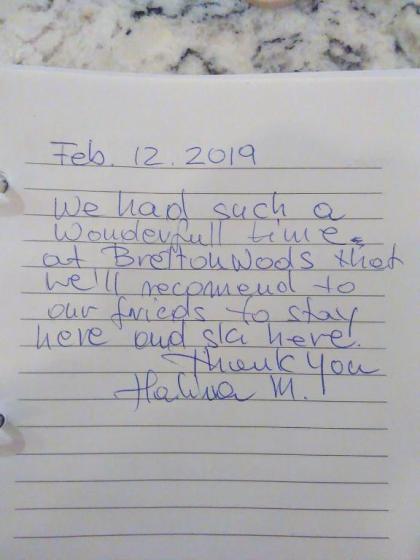 Feb. 12. 2019
We had such a
Wonderfull time
at BrettonWoods that
we'll recomend to
our frieds to stay
here and ski here.
Thank You
Halina M.